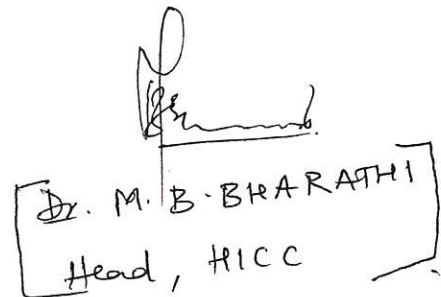 Dr. M. B. BHARATHI
Head, HICC